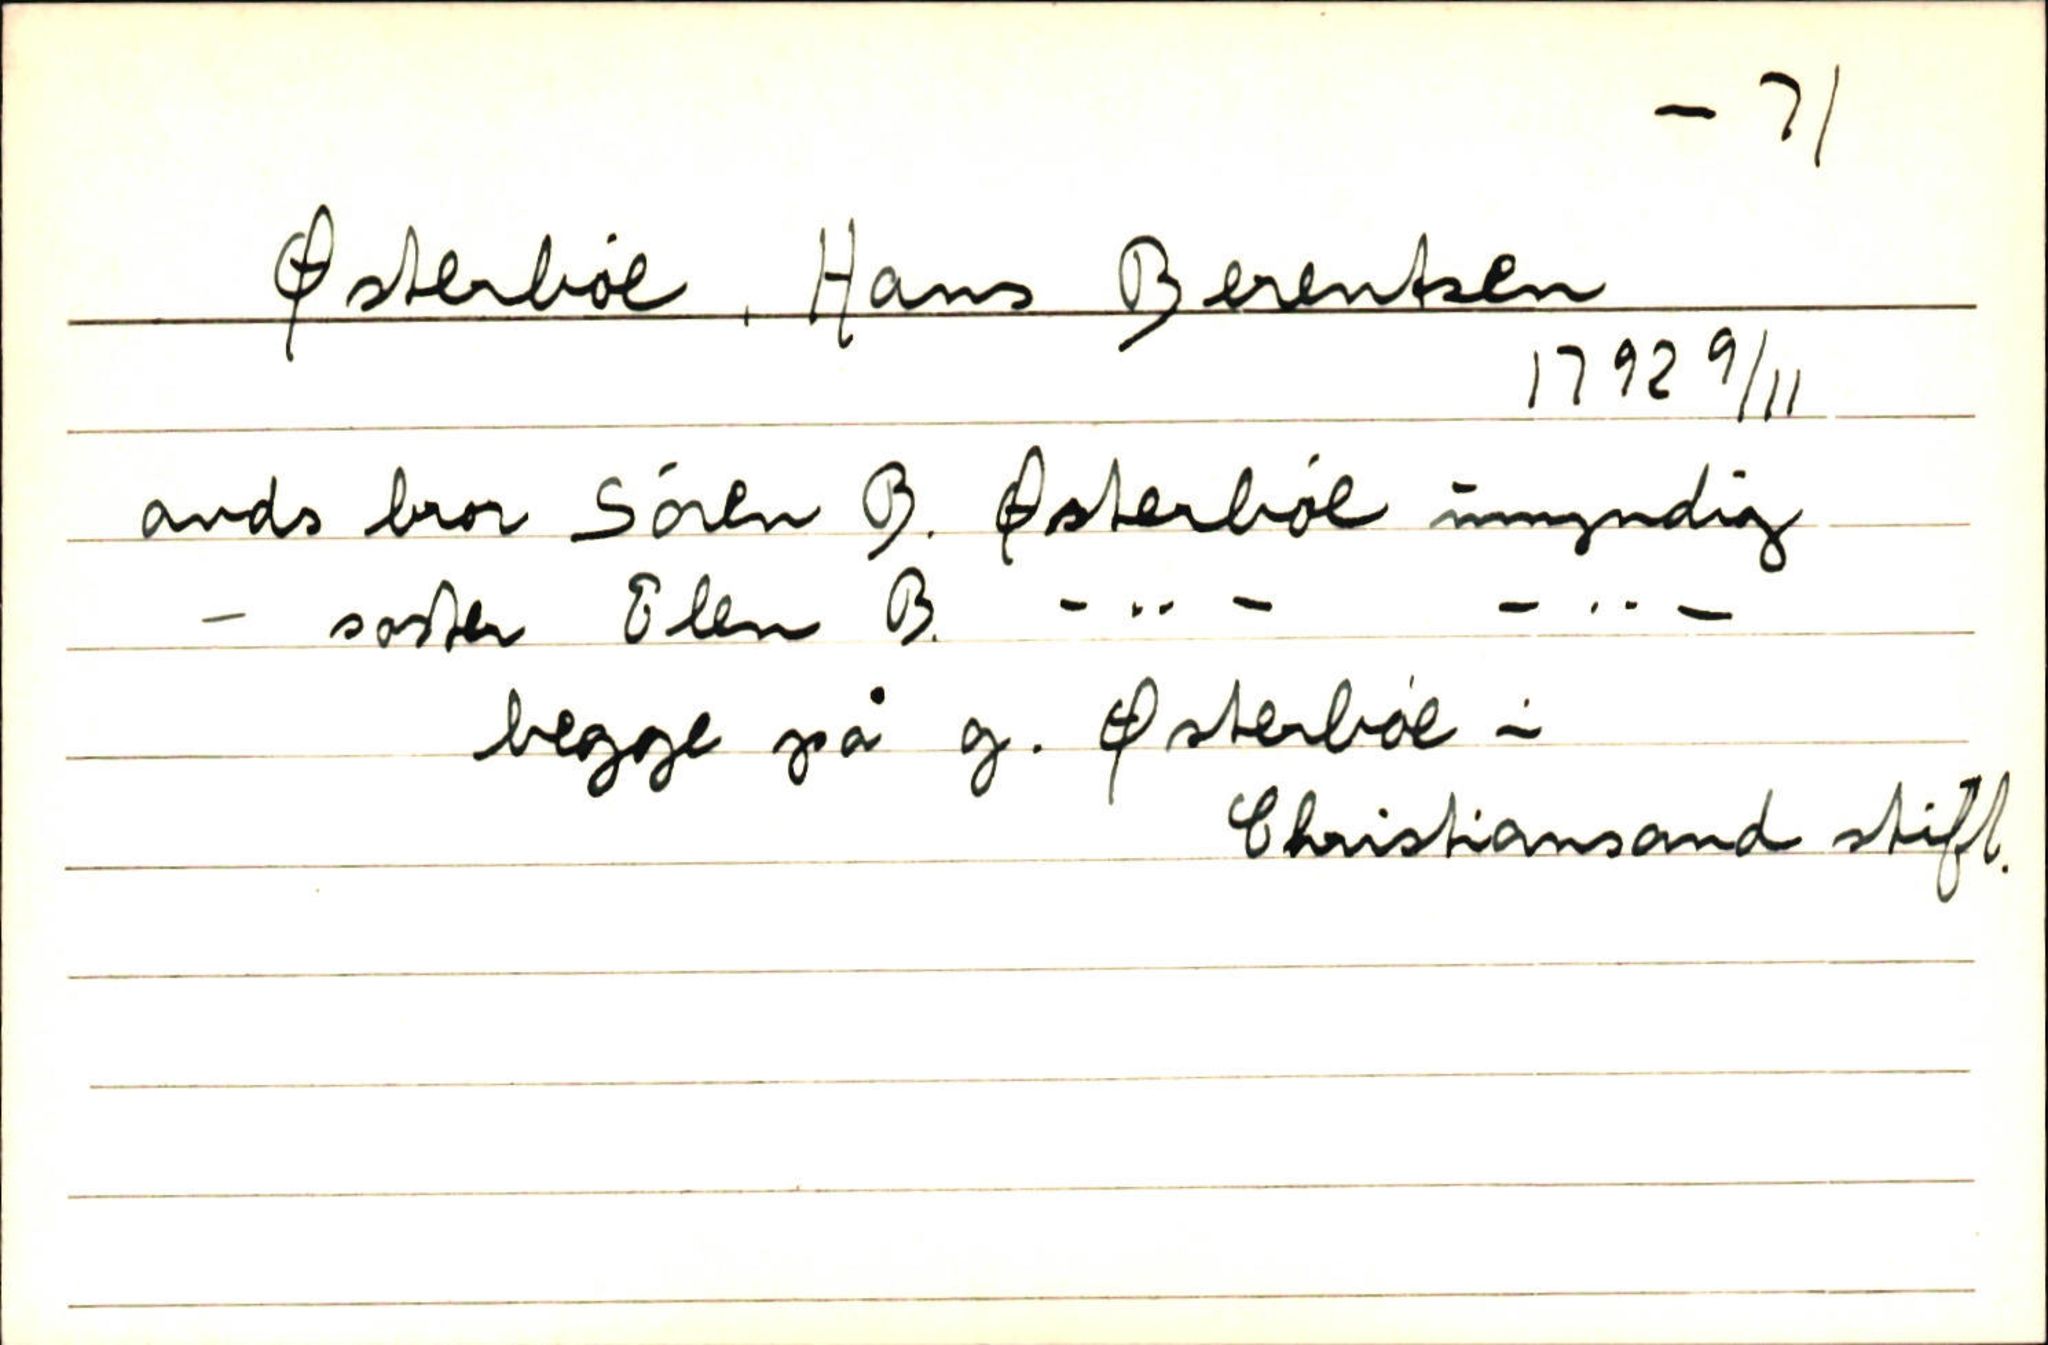 - 71
Østerbøe, Hans Berentsen
1792 9/11
avds bror Sören B. Østerbøe umyndig
- søster Elen B. - ·· - - ·· -
begge på g. Østerbøe i
Christiansand stift.